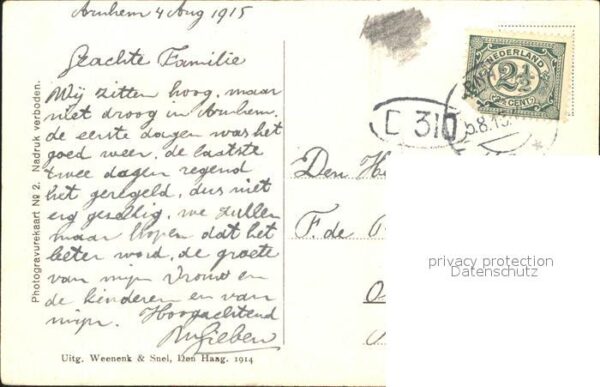 Arnhem 4 Aug 1915
Geachte Familie
Wij zitten hoog, maar
niet droog in Arnhem.
de eerste dagen was het
goed weer, de laatste
twee dagen regend
het geregeld, dus niet
erg gezellig, we zullen
maar hopen dat het
beter word, de groete
van mijn Vrouw en
de kinderen en van
mijn. Hoogachtend
Gieben
Uitg. Weenenk & Snel, Den Haag. 1914
Photogravurekaart No 2. Nadruk verboden.
NEDERLAND
2½
CENT
D 310
5.8.15
Den He
F. de
privacy protection
Datenschutz